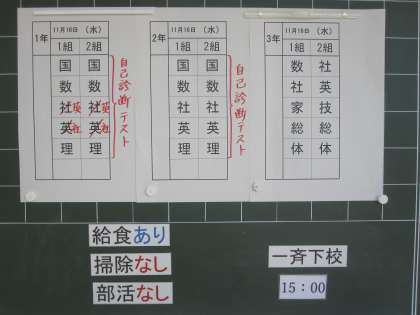 1年 11月16日 (水)
1組 2組
国 国
数 数
社 英 社 英
英 社 英 社
理 理
自己診断テスト
2年 11月16日 (水)
1組 2組
国 国
数 数
社 社
英 英
理 理
自己診断テスト
3年 11月16日 (水)
1組 2組
数 社
社 英
家 技
総 総
体 体
給食あり
掃除なし
部活なし
一斉下校
15:00